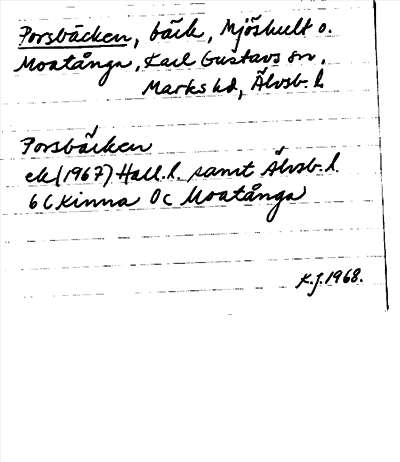 Porsbäcken, bäck, Mjöshult o.
Moatånga, Karl Gustavs sn,
Marks hd, Älvsb. l.
Porsbäcken
ek (1967) Hall. l. samt Älvsb. l.
6 C Kinna 0 c Moatånga
K.J. 1968.